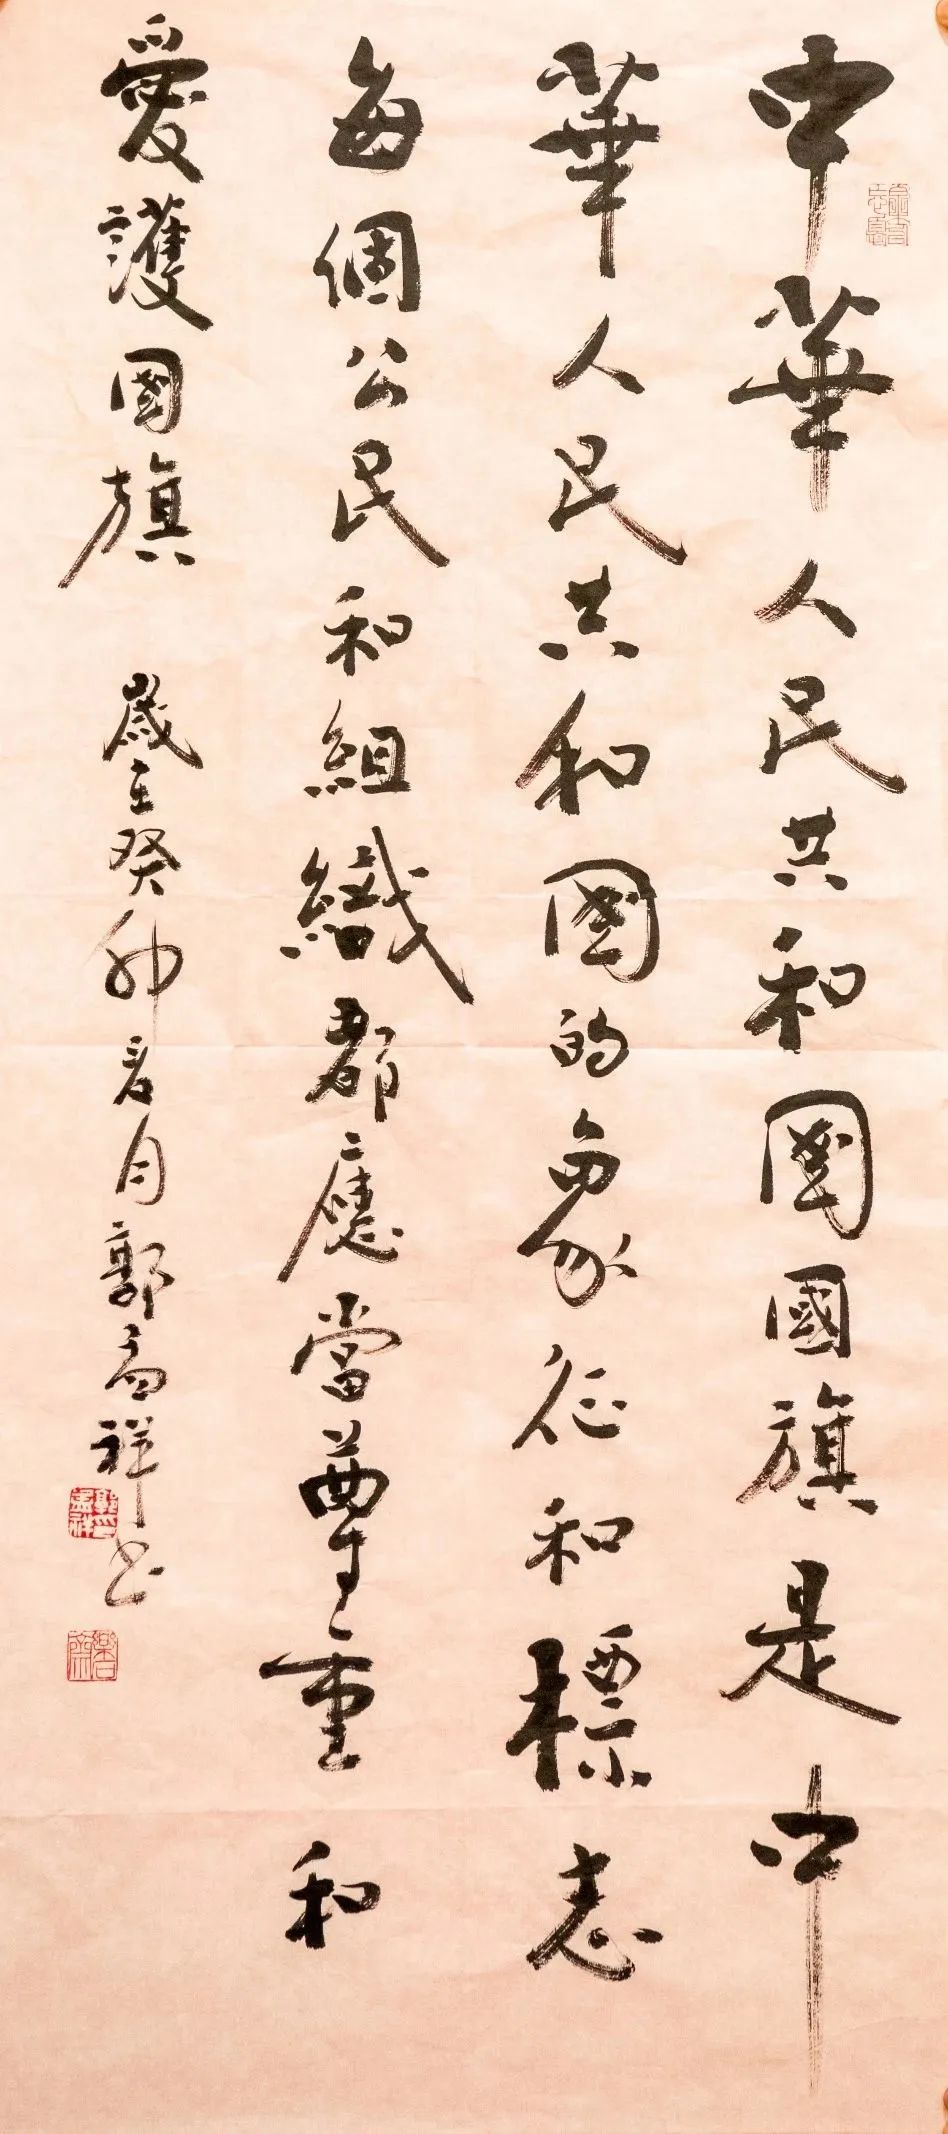 中華人民共和國國旗是中
華人民共和國的象征和標志
每個公民和組織都應當尊重和
愛護國旗 歲在癸卯春月郭孟祥书
郭孟祥印